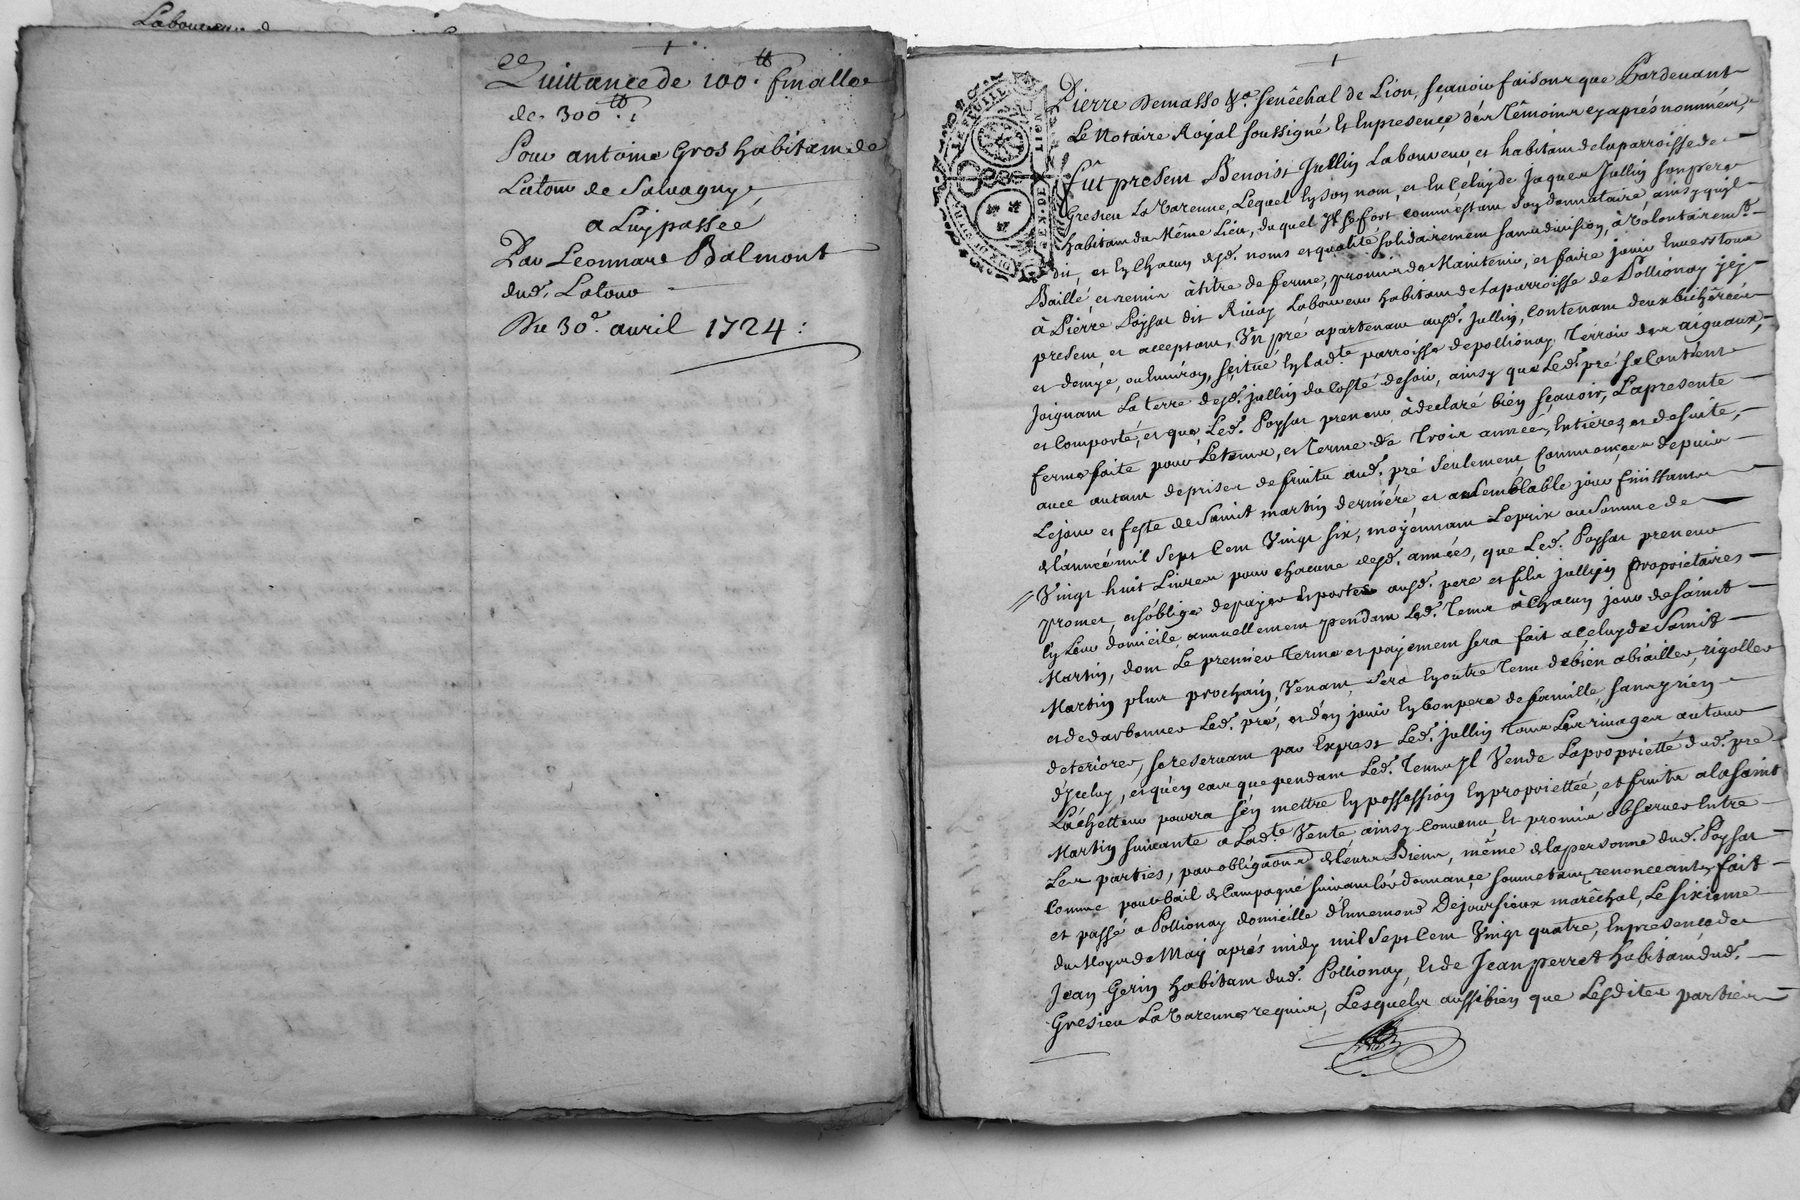 Quittance de 100 ₶. finalle
de 300 ₶.
Pour antoine Gros habitant de
Latour de Salvagny,
a Luy passée
Par Leonnare Balmont
dud. Latour
Du 30e. avril 1724 :
Pierre Demasso &a. Senêchal de Lion, sçavoir faisons que Pardevant
Le Notaire Royal soussigné Et En presence des têmoins cy aprés nommés,
fut present Benoist Jullin Laboureur et habitant de la parroisse de
Gresieu La Varenne, Lequel en son nom, et En Celuy de Jaques Jullin son pere
habitant du Même Lieu, duquel Jl se fort comme estant son donnataire, ainsy qu'il
dit, et En Chacun desd. noms et qualité solidairement sans division, à Volontairemt.
Baillé et remis à titre de ferme, promis de Maintenir, et faire jouir Envers tous
à Pierre Poysat dit Laboureur habitant de La parroisse de Pollionay jcy
present et acceptant, Vn pre apartenant ausd. Jullin, Contenant deux bichêrées
et demye, ou Environ, scitué En Ladte. parroisse de pollionay, Terroir des aiguaux,
Joignant La terre desd. jullin du Costé de soir, ainsy que Led. pré se Contient
et Comporte, et que Led. Poysat preneur à declaré bien sçavoir, La presente
ferme faite pour Le tems, et Terme de Trois années, Entieres et de suite,
avec autant de prises de fruits aud. pré seulement Commencées depuis
Le jour et feste de Saint martin derniére, et a semblable jour finissant
de l'année mil sept Cent Vingt six, moyennant Le prix ou Somme de
Vingt huit Livres pour chacune desd. années, que Led. Poysat preneur
promet, et s'oblige de payer et porter ausd. pere et fils jullyn proprietaires
En Leur domicile annuellement pendant Led. tems à Chacun jour de Saint
Martin, dont Le premier Terme et payement sera fait a Celuy de Saint
Martin plus prochain, Venant, Sera En outre Tenu de bien abiailler, rigoller
et dedarbonner Led. pré, et d'en jouir En bon pere de famille, sans y rien
deteriorer, se reservant par Exprest Led. jullin Tous Les rivages autour
d'Jceluy, et qu'en Cas que pendant Led. Tems Jl Vende La proprietté dud. pré
L'achetteur pourra s'en mettre En possession En propriettée, et fruits a la Saint
Martin suivante a Ladte. Vente ainsy Convenu Et promis observer Entre
Les parties, par obligaons de leurs Biens, même de la personne dud. Poysat
Comme pour bail de Campagne suivant l'ordonnance soumettant, renonceant, fait
et passé a Pollionay domicille d'Ennemond Dejoursieux marêchal, Le sixieme
du Moys de May aprés midy mil sept Cent Vingt quatre, En presence de
Jean Gerin habitant dud. Pollionay, Et de Jean perret habitant dud.
Gresieu La Varenne requis, Lesquels aussi bien que Lesdites parties